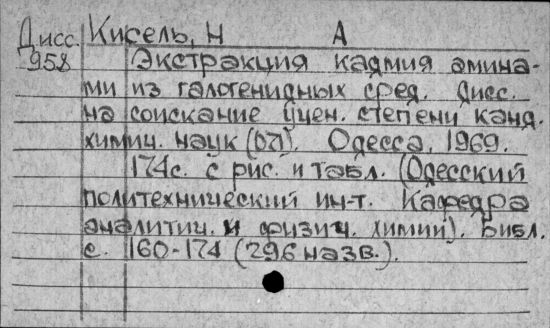 Дисс. Кисель, Н А
958 Экстракция кадмия амина-
ми из галогенидных сред. Дисс.
на соискание учен. степени канд.
химич. наук (071). Одесса, 1969.
174с. с рис. и табл. (Одесский
политехнический ин-т. Кафедра
аналитич. и физич. химии). Библ.
с. 160-174 (296 назв.).